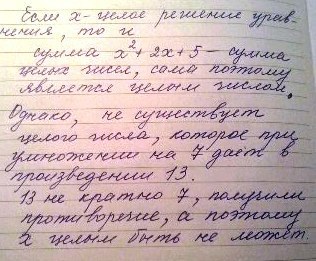 Если х- целое решение урав-
нения, то и
сумма x²+2x+5 – сумма
целых чисел, сама поэтому
является целым числом.
Однако, не существует
целого числа, которое при
умножении на 7 даёт в
произведении 13.
13 не кратно 7, получили
противоречие, а поэтому
х целым быть не может.